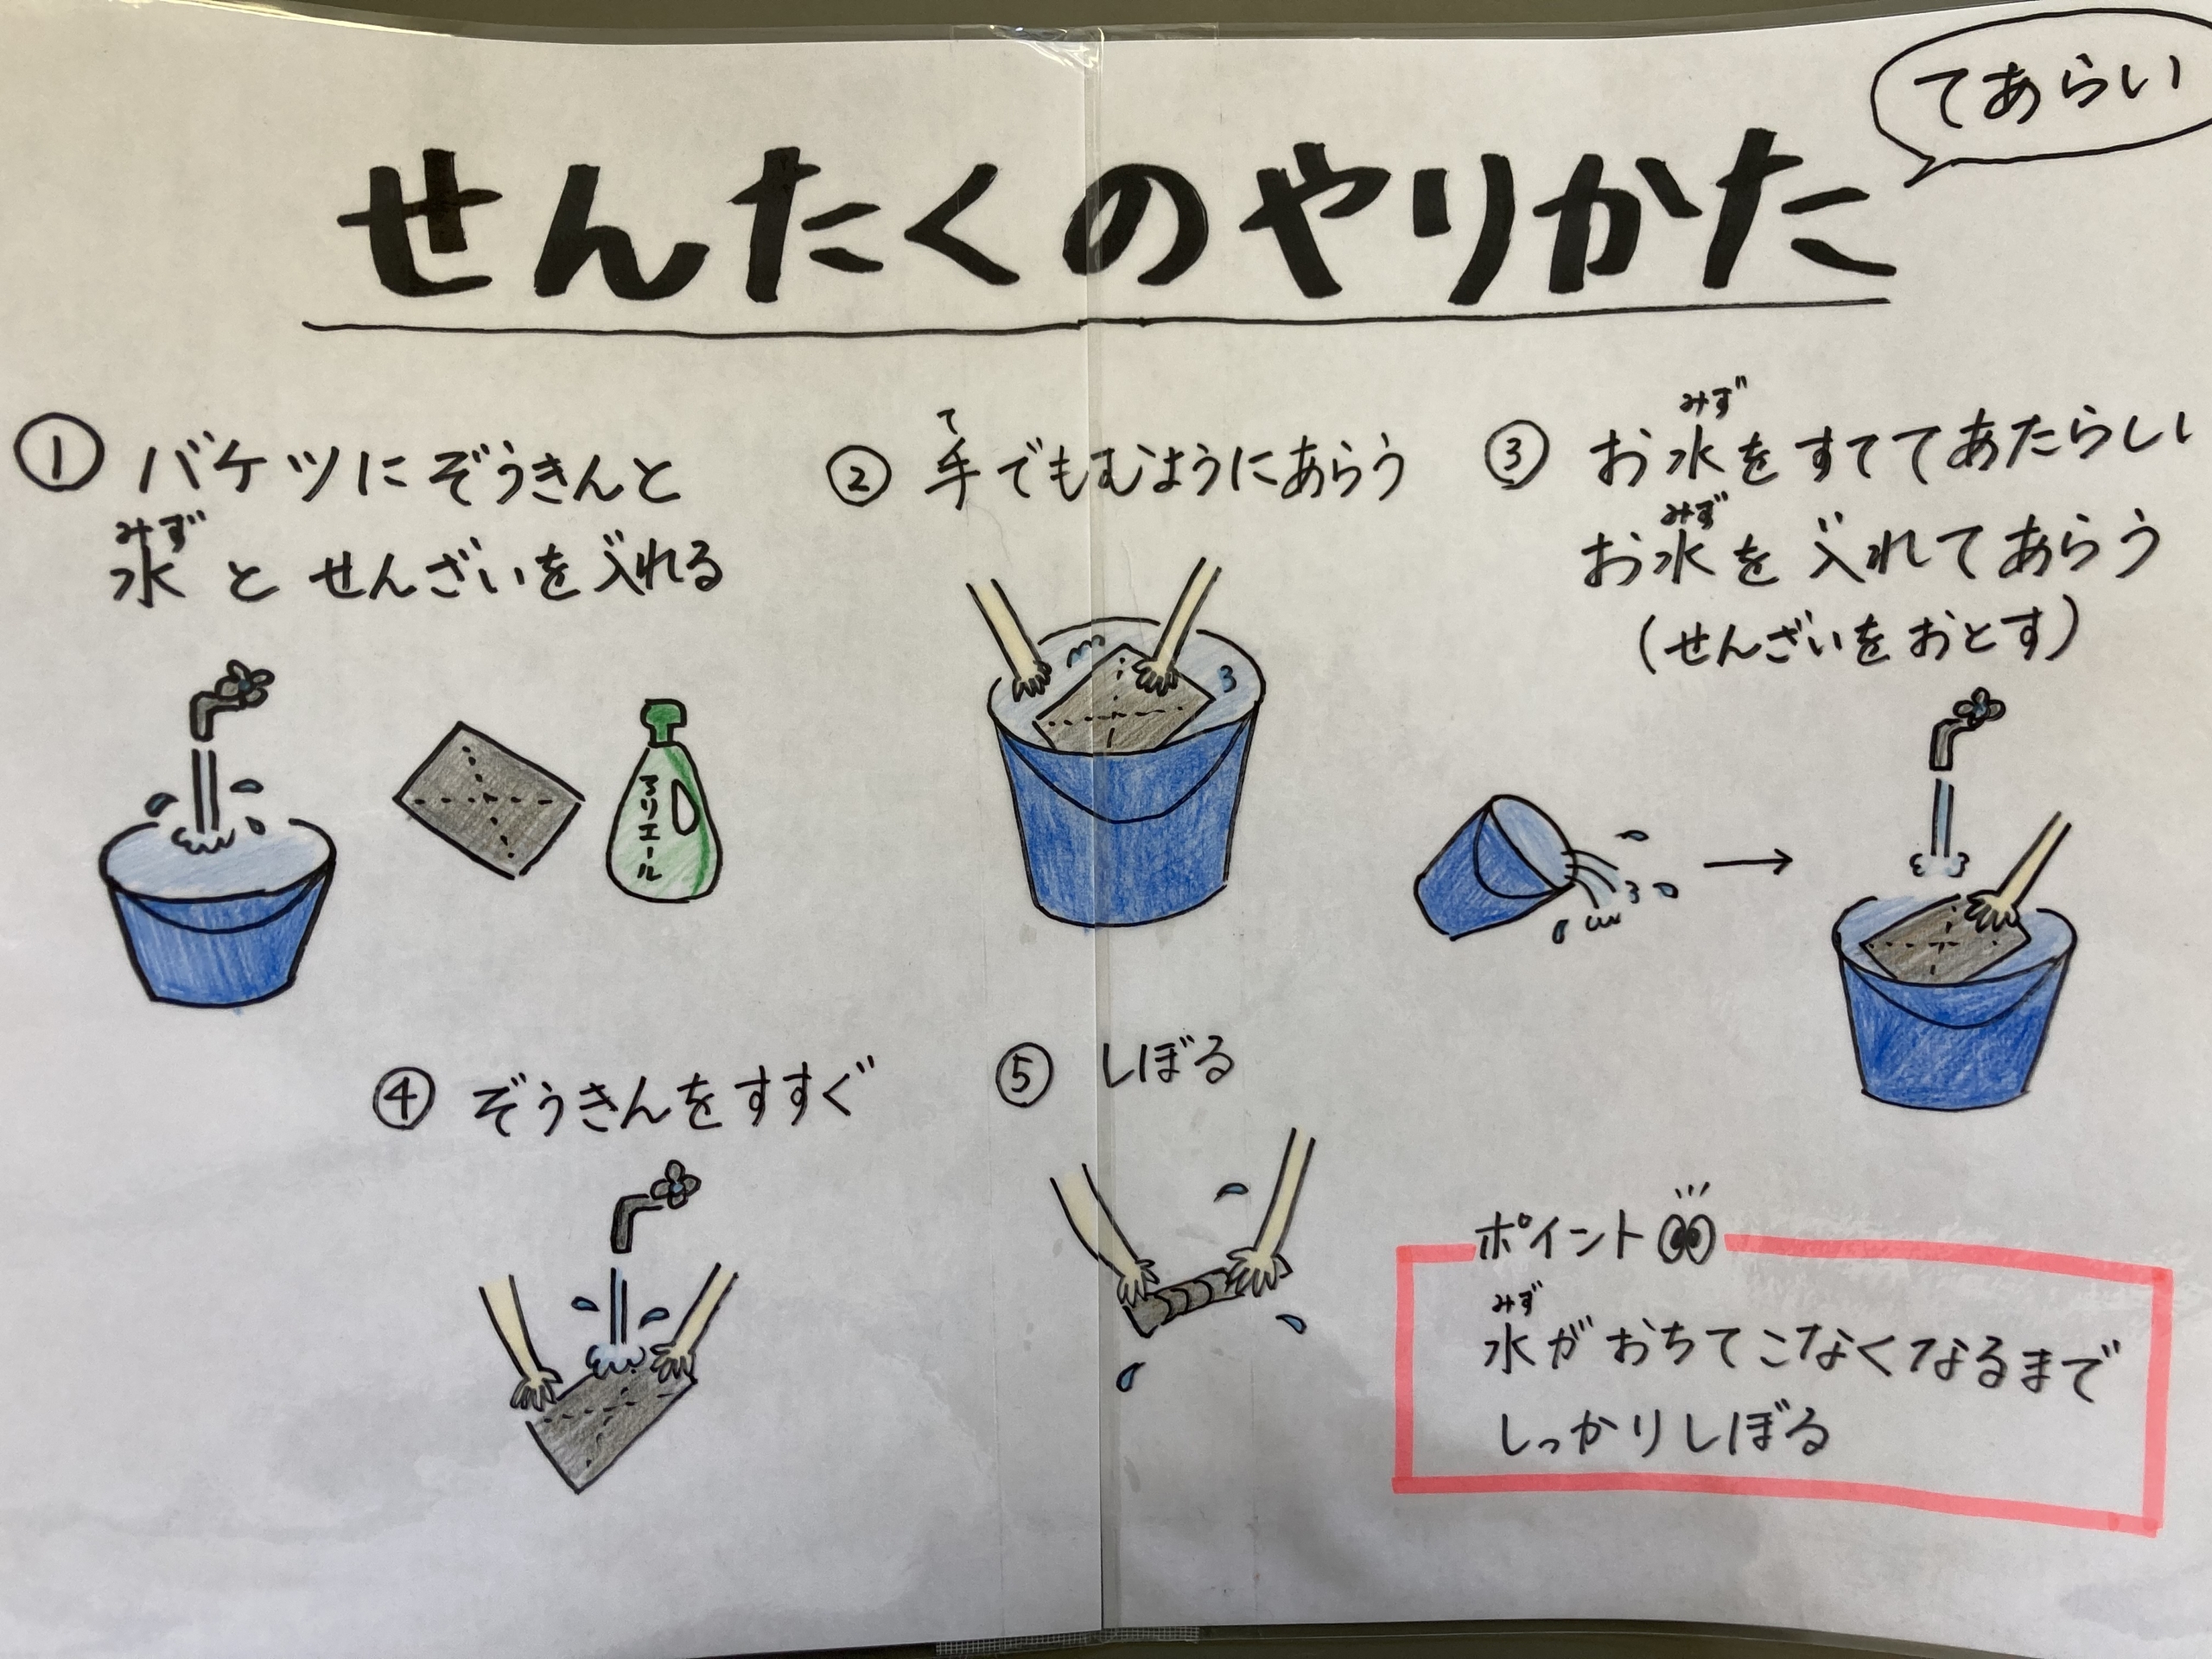 てあらい
せんたくのやりかた
① バケツにぞうきんと
みず
水とせんざいを入れる
アリエール
て
② 手でもむようにあらう
みず
③ お水をすててあたらしい
みず
お水を入れてあらう
(せんざいをおとす)
④ ぞうきんをすすぐ
⑤ しぼる
ポイント
みず
水がおちてこなくなるまで
しっかりしぼる